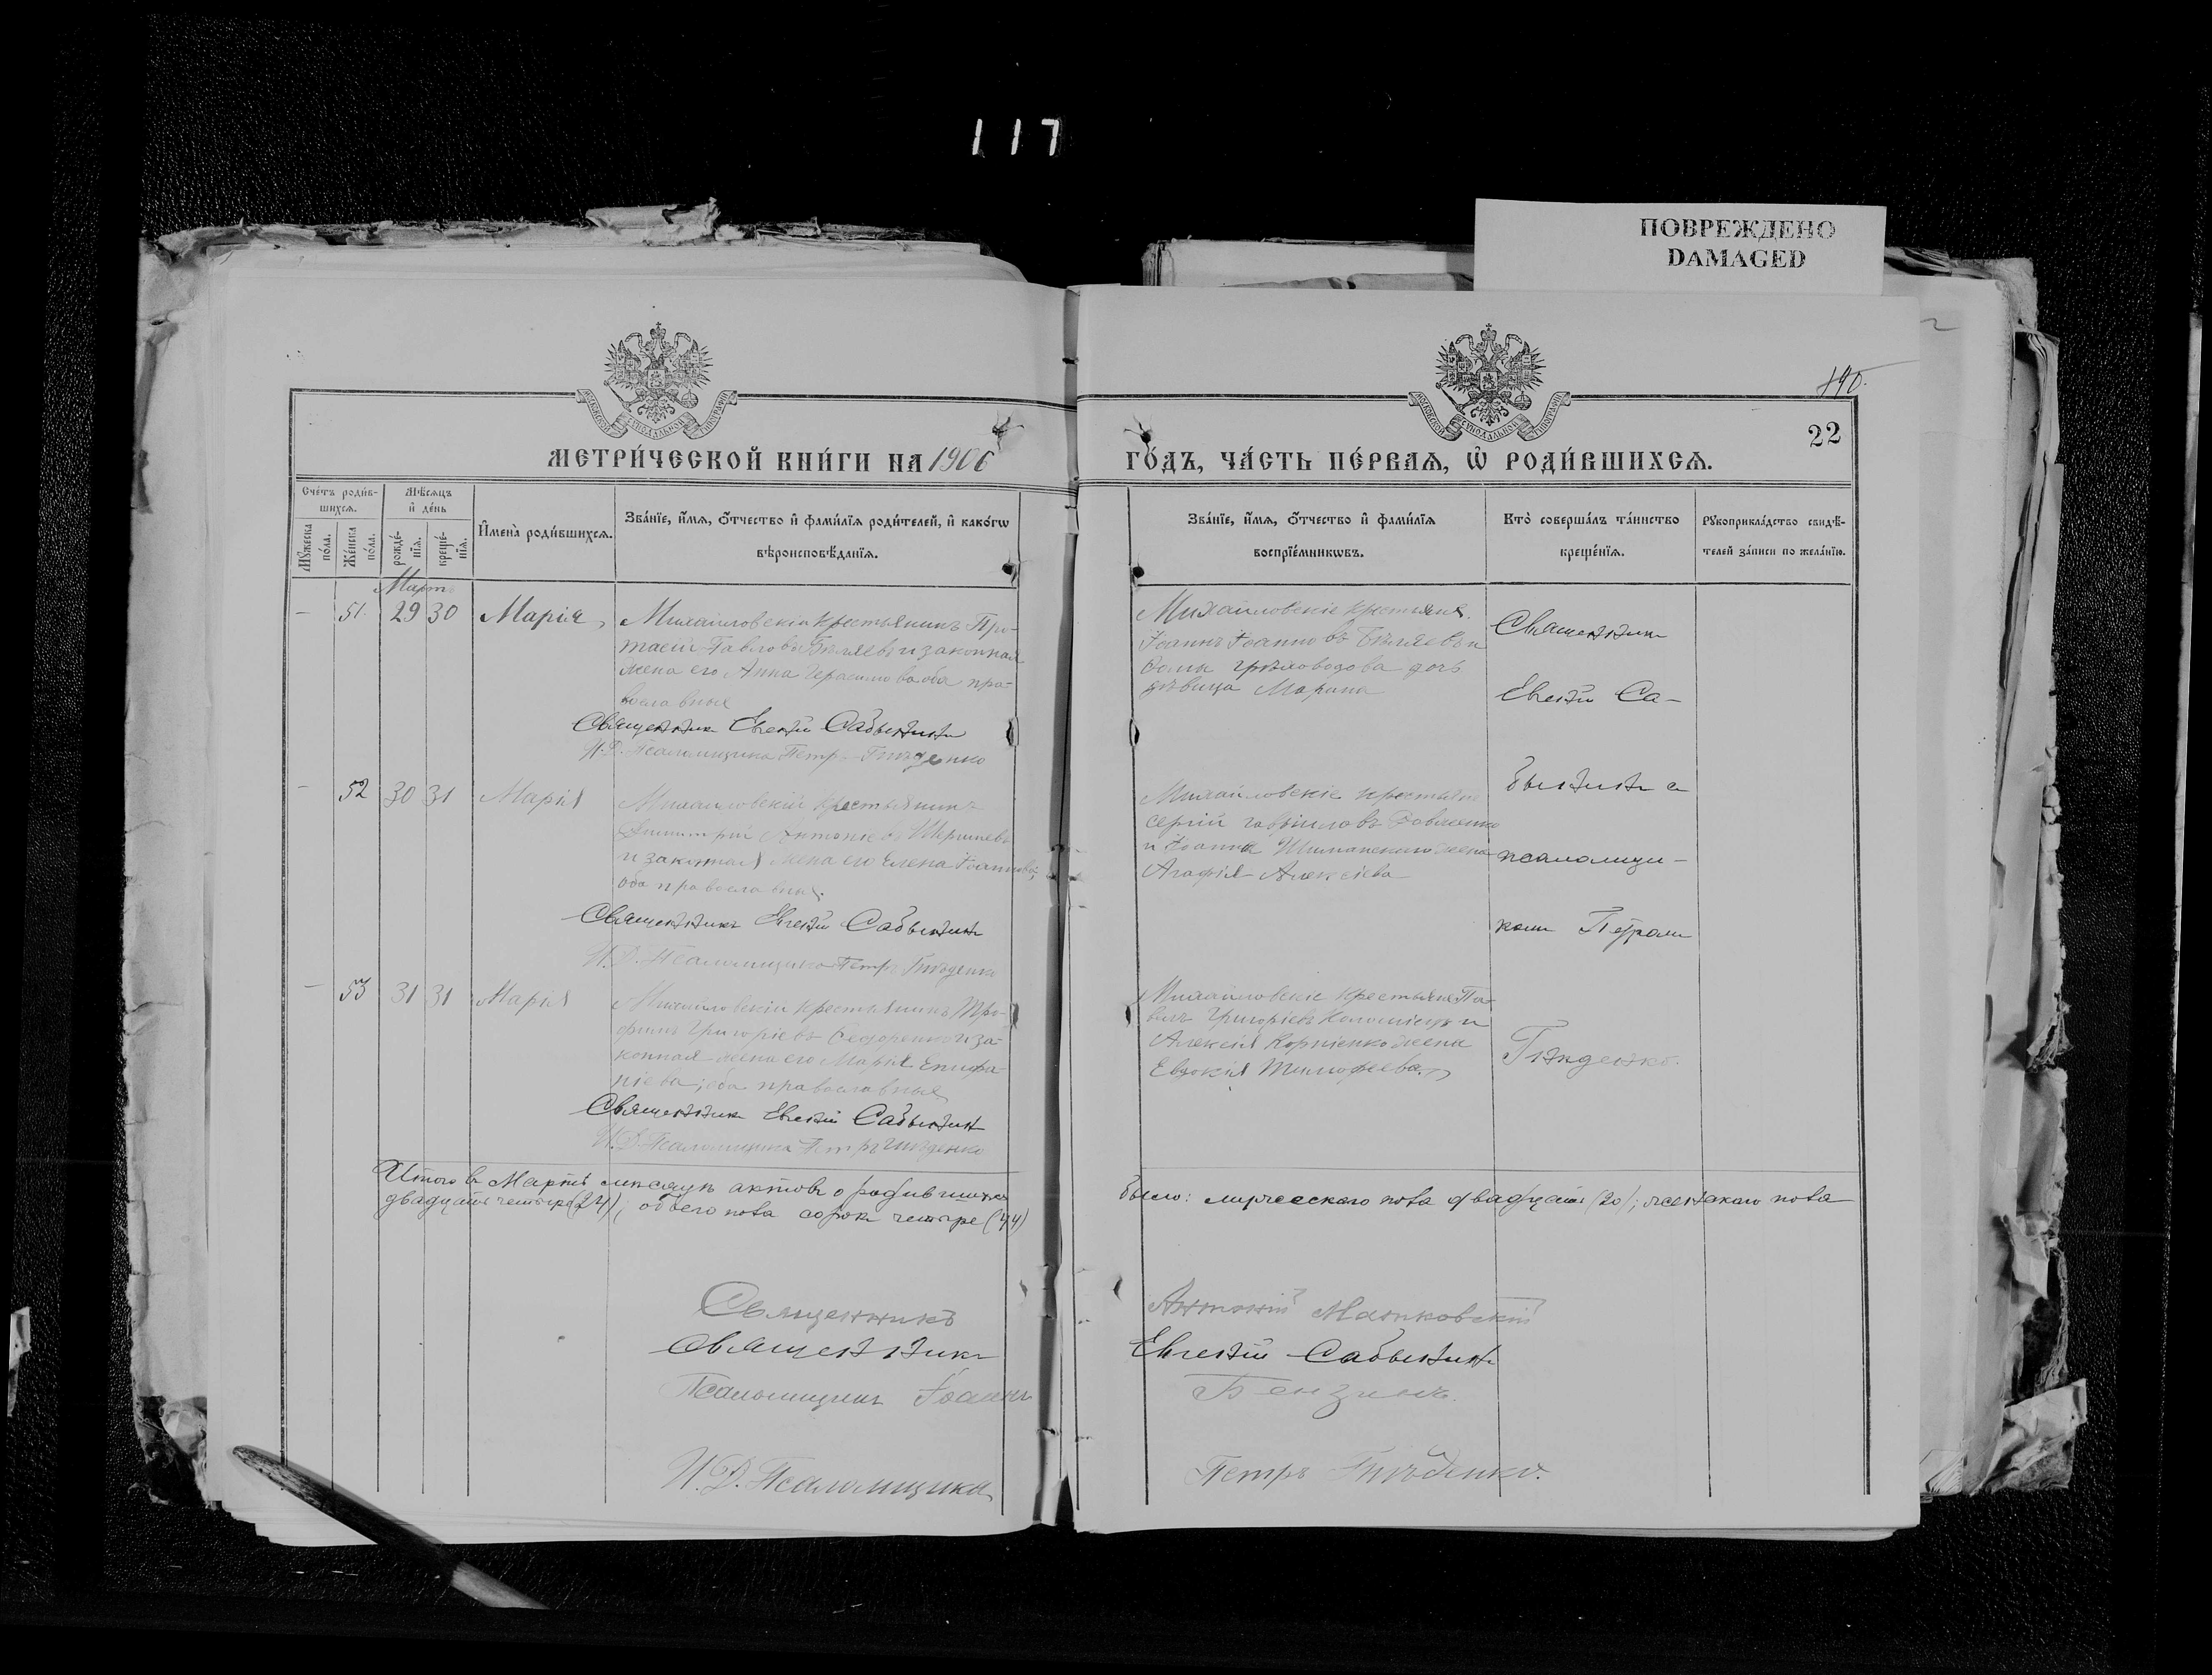 117
ПОВРЕЖДЕНО
DAMAGED
190.
22
МЕТРИ́ЧЕСКОЙ КНИ́ГИ НА 1906
ГО́ДЪ, ЧА́СТЬ ПЕ́РВАЯ, Ѽ РОДИ́ВШИХСЯ.
Счетъ роди́вшихся.
Мꙋжеска по́ла.
Же́нска по́ла.
Мѣ́сяцъ и҆ де́нь
рожде́нїя.
креще́нїя.
И҆мена̀ роди́вшихся.
Зва́нїе, и҆́мя, ѻ҆́тчество и҆ фами́лїя роди́телей, и҆ како́гѡ
вѣроисповѣ́данїя.
Зва́нїе, и҆́мя, ѻ҆́тчество и҆ фами́лїя
воспрїе́мникѡвъ.
Кто̀ соверша́лъ та́инство
креще́нїя.
Рꙋкоприкла́дство свидѣ́телей за́писи по жела́нїю.
Мартъ
— 51. 29 30 Марія
Михайловскій крестьянинъ Про-
тасій Павловъ Бѣляевъ и законная
жена его Анна Герасимова оба пра-
вославные
Священникъ Евгеній Сабынинъ
И. Д. Псаломщика Петръ Гнѣденко
Михайловскіе крестьяне
Іоаннъ Іоанновъ Бѣляевъ и
дочь
дѣвица Марина
— 52 30 31 Марія
Михайловскій крестьянинъ
Димитрій Антоніевъ
и законная жена его Елена Іоаннова,
оба православные.
Священникъ Евгеній Сабынинъ
И. Д. Псаломщика Петръ Гнѣденко
Михайловскіе крестьяне
Сергій Гавріиловъ
и Іоанна жена
Агафія Алексіева
— 53 31 31 Марія
Михайловскій крестьянинъ Тро-
фимъ Григоріевъ Сидоренко и за-
конная жена его Марія Епифа-
ніева, оба православные
Священникъ Евгеній Сабынинъ
И. Д. Псаломщика Петръ Гнѣденко
Михайловскіе крестьяне Па-
велъ Григоріевъ Коломіецъ и
Алексія Корніенко жена
Евдокія Тимофеева.
Священникъ
Евгеній Са-
бынинъ съ
псаломщи-
комъ Петромъ
Гнѣденко.
Итого въ Мартѣ мѣсяцѣ актовъ о родившихся было: мужескаго пола двадцать (20); женскаго пола
двадцать четыре (24), обоего пола сорокъ четыре (44)
Священникъ Антоній Матковскій
Священникъ Евгеній Сабынинъ
Псаломщикъ Іоаннъ Бензинъ.
И. Д. Псаломщика Петръ Гнѣденко.